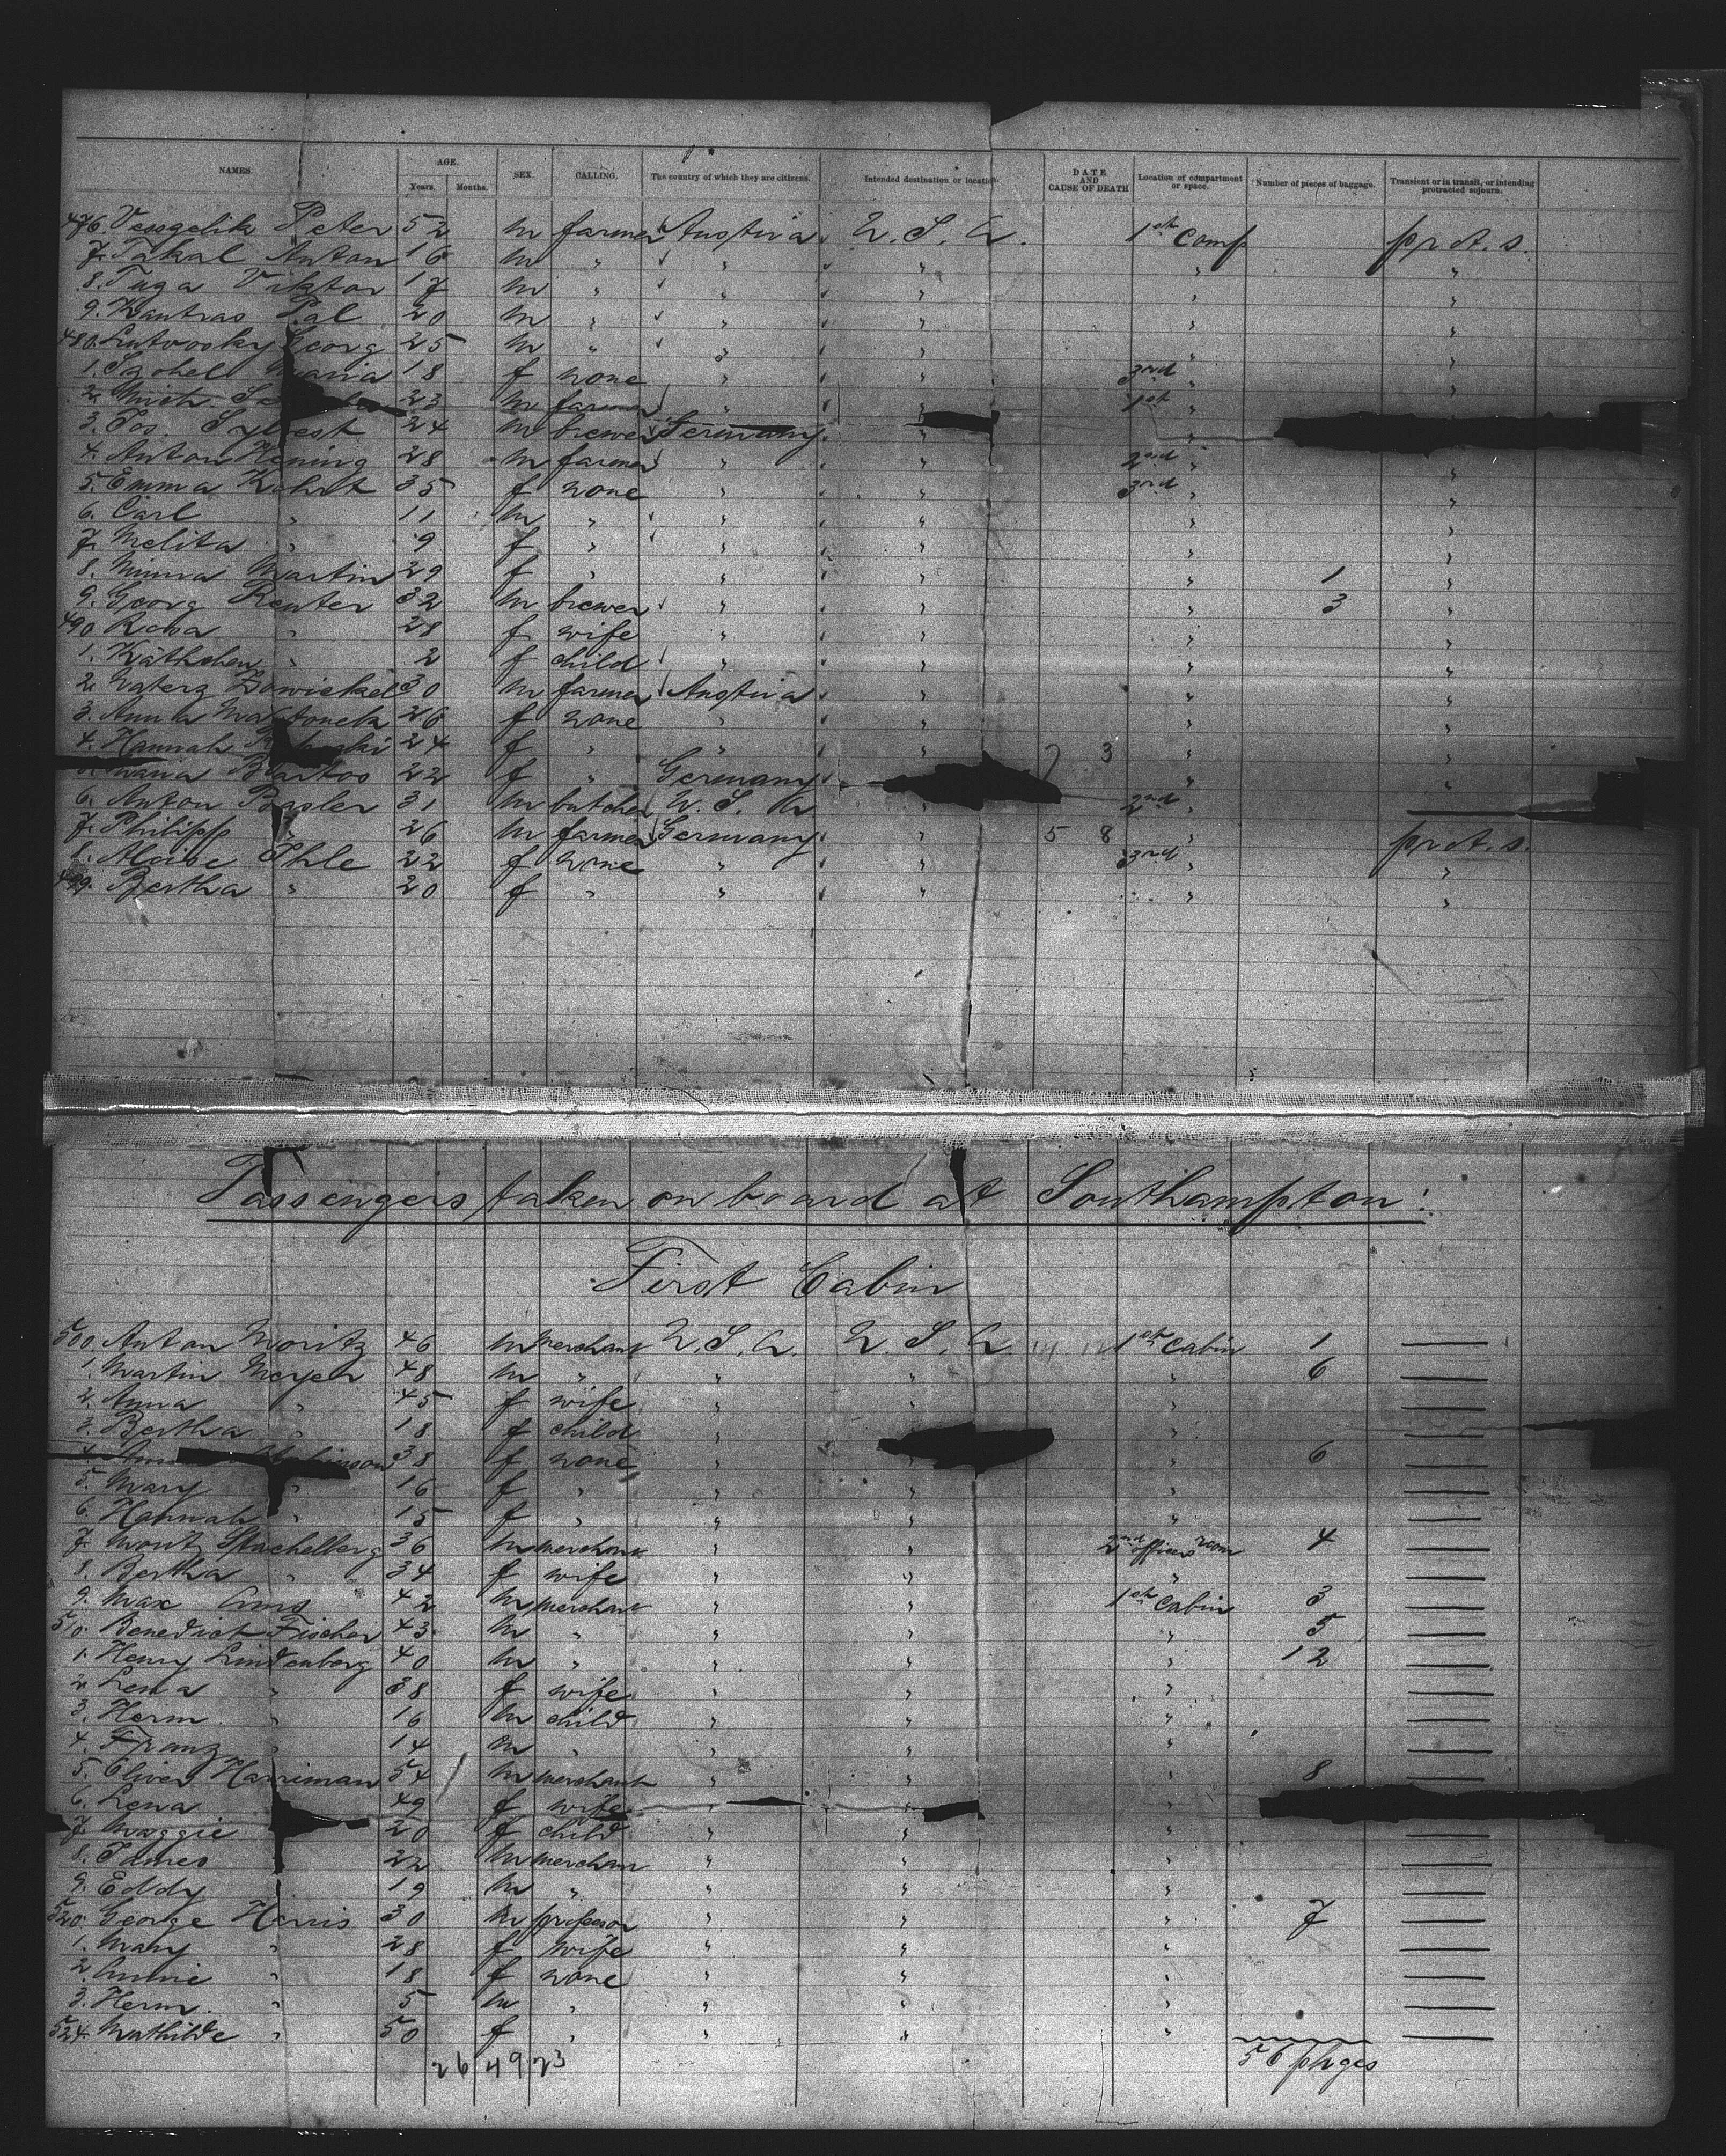 NAMES. AGE. Years. Months. SEX. CALLING. The country of which they are citizens. Intended destination or location. DATE AND CAUSE OF DEATH Location of compartment or space. Number of pieces of baggage. Transient or in transit, or intending protracted sojourn.
476. Peter 52 m farmer Austria U. S. A. 1st Comp prot. s.
7. Takal Anton 16 m " " " " "
8. Tuga Viktor 17 m " " " " "
9. Kantras Pal 20 m " " " " "
480. Georg 25 m " " " " "
1. Maria 18 f none " " 3rd " "
2. 23 m farmer " " 1st "
3. Jos. Sylvest 24 m brewer Germany " "
4. Anton Hening 28 m farmer " " 2nd " "
5. Emma 35 f none " " 3rd " "
6. Carl " 11 m " " " " "
7. Melita " 9 f " " " " "
8. Minna Martin 29 f " " " " 1 "
9. Georg Reuter 32 m brewer " " " 3 "
490 Rosa " 28 f wife " " " "
1. Käthchen " 2 f child " " " "
2. 30 m farmer Austria " " "
3. Anna 26 f none " " " "
4. Hannah 24 f " " " 3 " "
Maria Bartos 22 f " Germany " "
6. Anton Basler 31 m butcher U. S. A " 2nd "
7. Philipp " 26 m farmer Germany " 5 8 " prot. s.
8. Aloise Ihle 22 f none " " 3rd " "
499. Bertha " 20 f " " " " "
Passengers taken on board at Southampton:
First Cabin
500 Anton Moritz 46 m merchant U. S. A. U. S. A. 1st Cabin 1
1. Martin Meyer 48 m " " " " 6
2. Anna " 45 f wife " " "
3. Bertha " 18 f child " " "
4. 38 f none " " " 6
5. Mary " 16 f " " " "
6. Hannah " 15 f " " " "
7. Moritz Stachelberg 36 m merchant " " 2nd officers room 4
8. Bertha " 34 f wife " " "
9. Max Ams 42 m merchant " " 1st Cabin 3
510. Benedict Fischer 43 m " " " " 5
1. Henry Lindenberg 40 m " " " " 12
2. Lena " 38 f wife " " "
3. Herm. " 16 m child " " "
4. Franz " 14 m " " " "
5. Oliver Harriman 54 m merchant " " " 8
6. Lena 49 f wife " "
7. Maggie 20 f child " " "
8. James " 22 m merchant " " "
9. Eddy 19 m " " " "
520. George Harris 30 m professor " " " 7
1. Mary " 28 f wife " " "
2. Annie " 18 f none " " "
3. Herm. " 5 m " " " "
524. Mathilde " 50 f " " " "
26 49 23 56 pkges